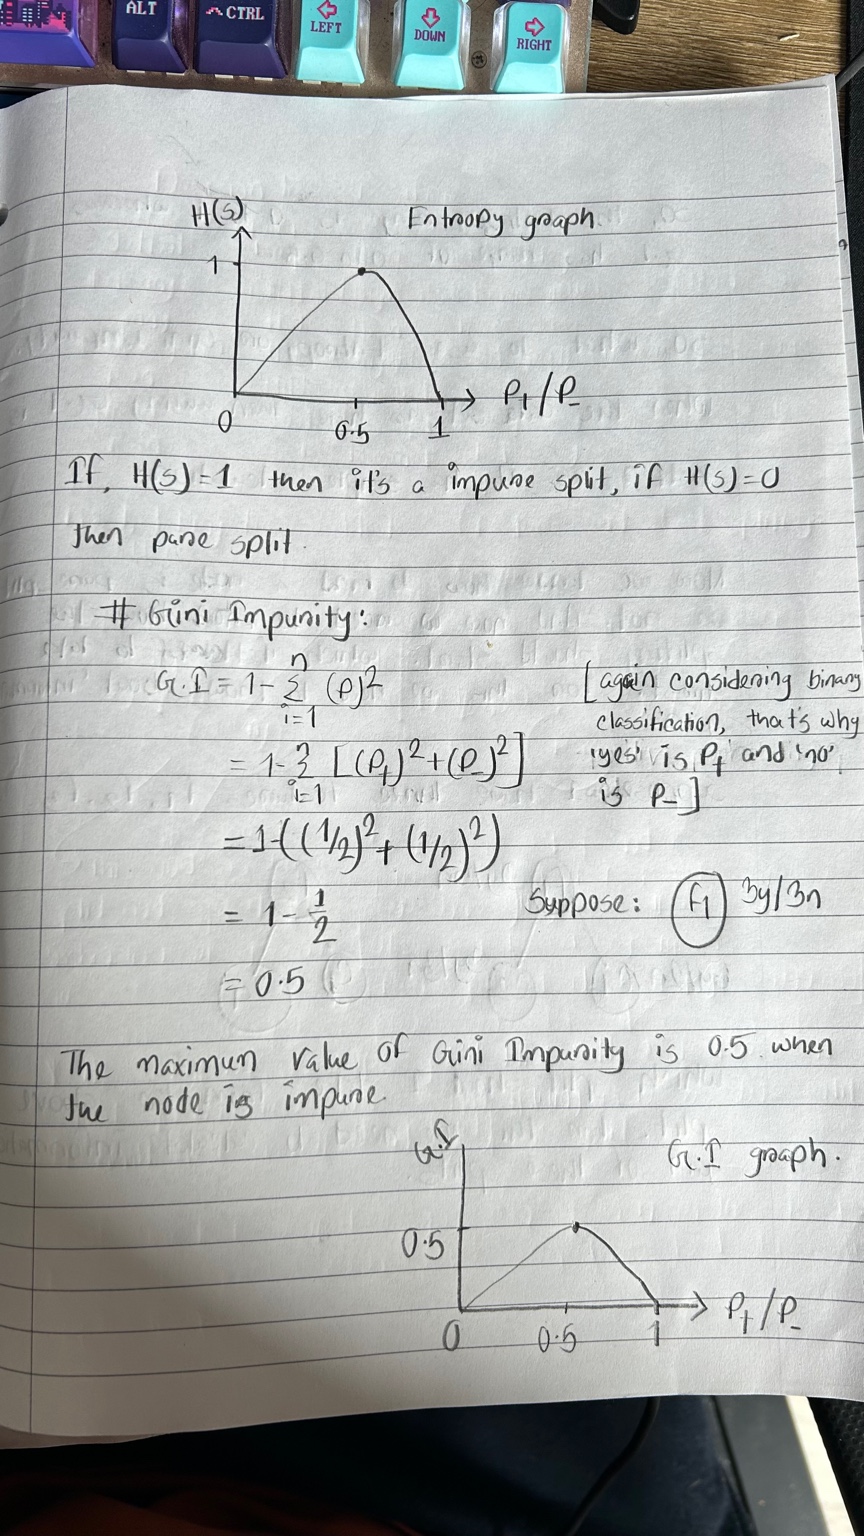 ALT
CTRL
LEFT
DOWN
RIGHT
H(s)
Entropy graph
1
P+/P-
0
0.5
1
If, H(s)=1 then it's a impure split, if H(s)=0
then pure split.
# Gini Impurity:
G.I = 1- n Σ i=1 (P)²
[again considering binary
classification, that's why
= 1- Σ i=1 [(P+)²+(P-)²]
'yes' is P+ and 'no'
is P-]
= 1-((1/2)²+(1/2)²)
= 1- 1/2
Suppose: f1 3y/3n
= 0.5
The maximum value of Gini Impurity is 0.5 when
the node is impure.
G.I
G.I graph.
0.5
P+/P-
0
0.5
1